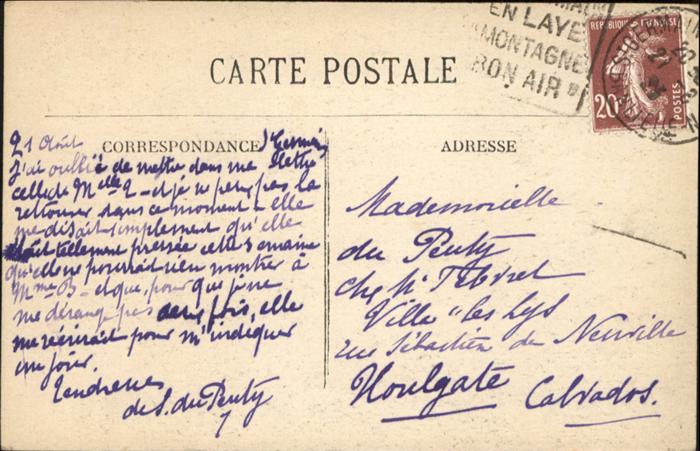 EN LAYE
"MONTAGNE
BON AIR"
ST GERMAIN
RÉPUBLIQUE FRANÇAISE
20c
POSTES
CARTE POSTALE
CORRESPONDANCE
ADRESSE
21 Août
St Germain
J'ai oublié de mettre dans ma lettre
celle de Melle L - et je ne peux pas la
retrouver dans ce moment - elle
me disait simplement qu'elle
était tellement pressée cette semaine
qu'elle ne pourrait rien montrer à
Mme B - et que, pour que je ne
me dérange pas deux fois, elle
me réécrirait pour m'indiquer
un jour.
Tendresses
de S. du Peuty
Mademoiselle
du Peuty
chez
Villa "les Lys
rue Sébastien de Neuville
Houlgate
Calvados.